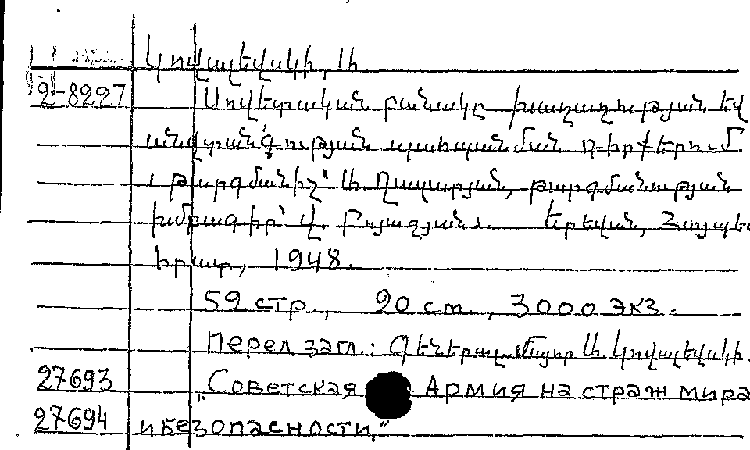 Կովալեվսկի, Ս
2-8227 Սովետական բանակը խաղաղության եվ
անվտանգության պահպանման դիրքերում
Թարգմանիչ՝ Ս. Ղազարյան, թարգմանության
խմբագիր՝ Վ. Բայազյան։ Երեվան, Հայպետ
հրատ, 1948.
59 стр., 20 см., 3000 экз.
Перел загл.: Գեներալ-մայոր Ս Կովալեվսկի.
27693 „Советская Армия на страж мира
27694 и безопасности,"